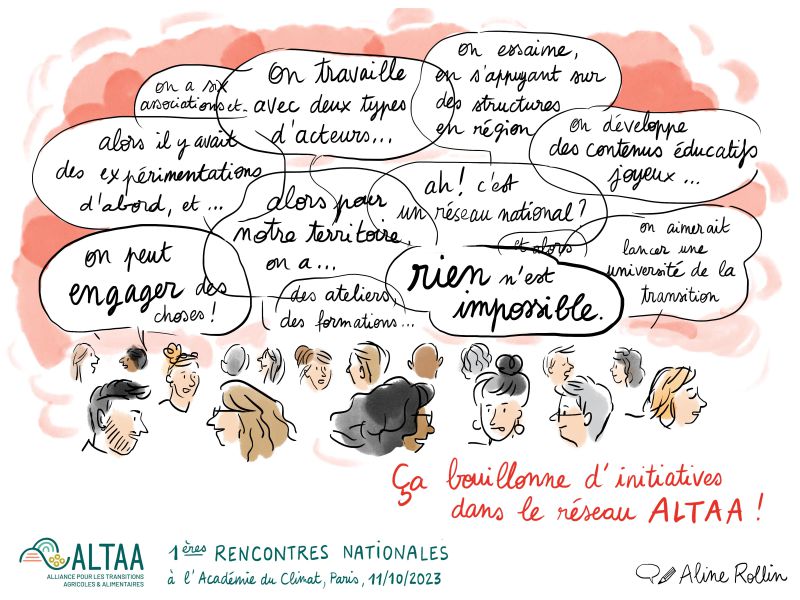 on a six
associations et..
on travaille
avec deux types
d'acteurs...
on essaime,
on s'appuyant sur
des structures
en région
alors il y avait
des expérimentations
d'abord, et ...
on développe
des contenus éducatifs
joyeux ...
alors pour
notre territoire,
on a...
ah! c'est
un réseau national?
et alors
on aimerait
lancer une
université de la
transition
on peut
engager des
choses!
des ateliers,
des formations...
rien n'est
impossible.
Ça bouillonne d'initiatives
dans le réseau ALTAA!
ALTAA
ALLIANCE POUR LES TRANSITIONS
AGRICOLES & ALIMENTAIRES
1ères RENCONTRES NATIONALES
à l'Académie du Climat, Paris, 11/10/2023
Aline Rollin